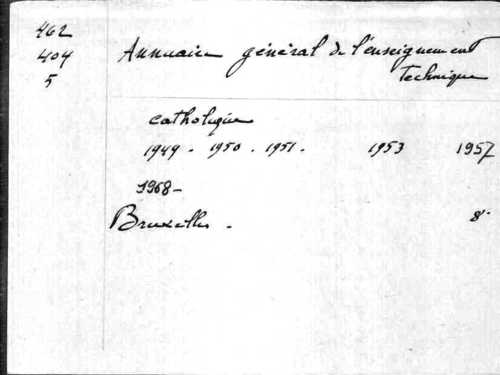 462
404
5
Annuaire général de l'enseignement
technique
catholique
1949 - 1950 - 1951 - 1953 1957
1968 -
Bruxelles -
8°